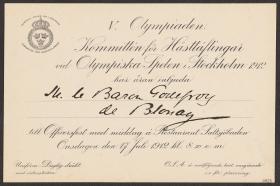 V. Olympiaden
Kommittén för Hästtäflingar
vid Olympiska Spelen i Stockholm 1912
har äran inbjuda
M. le Baron Godefroy
de Blonay
till Officersfest med middag å Restaurant Saltsjöbaden
Onsdagen den 17 juli 1912 kl. 8 e.m.
Uniform: Daglig dräkt
O.S.A.